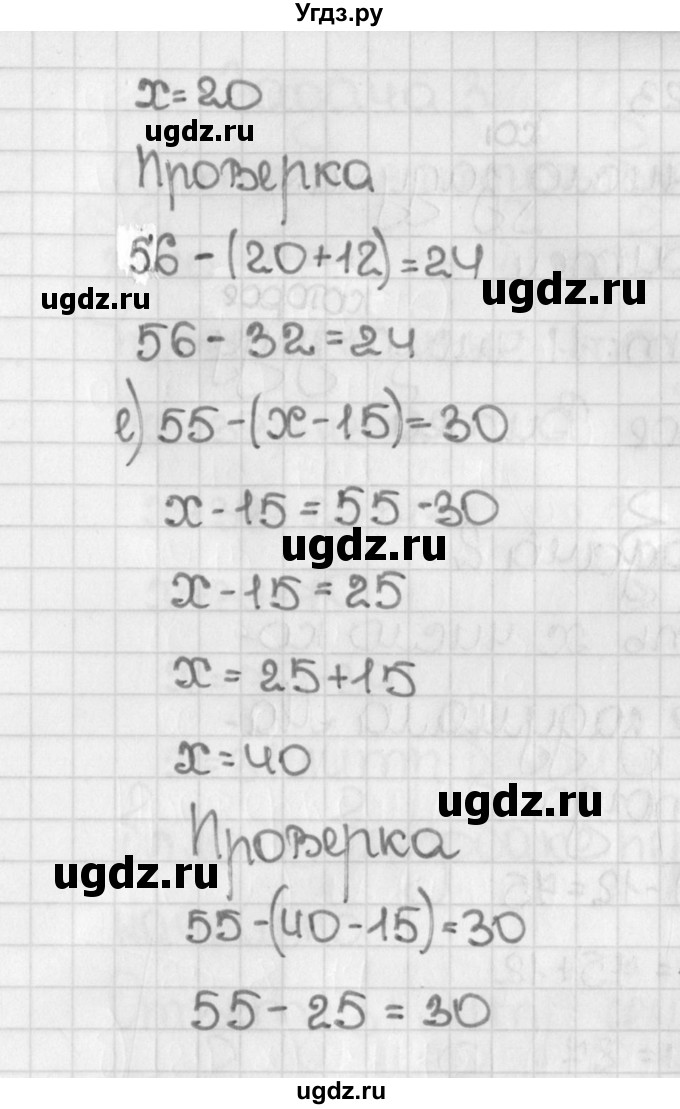 Угдз.ру
x=20
ugdz.ru
Проверка
56-(20+12)=24
ugdz.ru
ugdz.ru
56-32=24
е) 55-(x-15)=30
x-15=55-30
ugdz.ru
x-15=25
x=25+15
x=40
ugdz.ru
Проверка
ugdz.ru
55-(40-15)=30
55-25=30
ugdz.ru